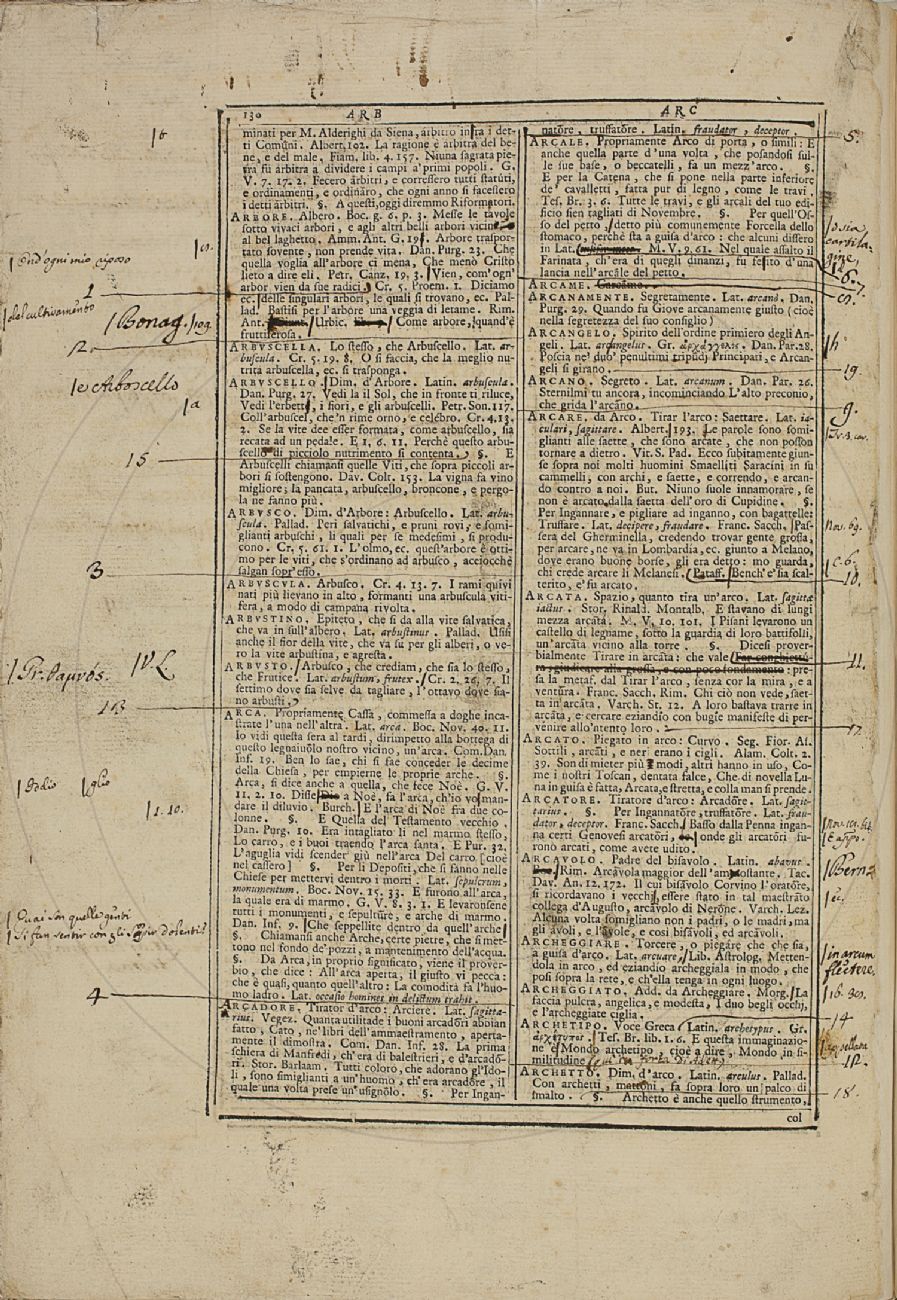 130 ARB ARC
minati per M. Alderighi da Siena, arbitro infra i det-
ti Comūni. Albert. 102. La ragione è àrbitra del be-
ne, e del male, Fiam. lib. 4. 157. Niuna sagrata pie-
tra fu àrbitra a dividere i campi a' primi popoli. G.
V. 7. 17. 2. Fecero àrbitri, e corressero tutti statúti,
e ordinamenti, e ordinâro, che ogni anno si facessero
i detti àrbitri. §. A questi, oggi diremmo Riformatori.
ARBORE. Albero. Boc. g. 6. p. 3. Messe le tavole
sotto vivaci arbori, e agli altri belli arbori vicine
al bel laghetto. Amm. Ant. G. 191. Arbore traspor-
tato sovente, non prende vita. Dan. Purg. 23. Che
quella voglia all'arbore ci mena, Che menò Cristo
lieto a dire eli. Petr. Canz. 19. 3. Vien, com'ogn'
arbor vien da sue radici. Cr. 5. Proem. 1. Diciamo
ec. delle singulari arbori, le quali si trovano, ec. Pal-
lad. Bastisi per l'arbore una veggia di letame. Rim.
Ant. Urbic. Come arbore, quand'è
fruttiferosa.
ARBVSCELLA. Lo stesso, che Arbuscello. Lat. ar-
buscula. Cr. 5. 19. 8. O si faccia, che la meglio nu-
trita arbuscella, ec. si trasponga.
ARBVSCELLO. Dim. d'Arbore. Latin. arbuscula.
Dan. Purg. 27. Vedi la il Sol, che in fronte ti riluce,
Vedi l'erbette, i fiori, e gli arbuscelli. Petr. Son. 117.
Coll'arbuscel, che'n rime orno, e celébro. Cr. 4. 13.
2. Se la vite dee esser formata, come arbuscello, sia
recata ad un pedale. E 1. 6. 11. Perchè questo arbu-
scello di picciolo nutrimento si contenta. §. E
Arbuscelli chiamansi quelle Viti, che sopra piccoli ar-
bori si sostengono. Dav. Colt. 153. La vigna fa vino
migliore; la pancata, arbuscello, broncone, e pergo-
la ne fanno più.
ARBVSCO. Dim. d'Arbore: Arbuscello. Lat. arbu-
scula. Pallad. Peri salvatichi, e pruni rovi, e somi-
glianti arbuschi, li quali per se medesimi, si produ-
cono. Cr. 5. 61. 1. L'olmo, ec. quest'arbore è otti-
mo per le viti, che s'ordinano ad arbusco, acciocchè
salgan sopr'esso.
ARBVSCVLA. Arbusco. Cr. 4. 13. 7. I rami quivi
nati più lievano in alto, formanti una arbuscula viti-
fera, a modo di campana rivolta.
ARBVSTINO. Epiteto, che si da alla vite salvatica,
che va in sull'albero. Lat. arbustinus. Pallad. Usisi
anche il fior della vite, che va su per gli alberi, o ve-
ro la vite arbustina, e agresta.
ARBVSTO. Arbusco, che crediam, che sia lo stesso,
che Frutice. Lat. arbustum, frutex. Cr. 2. 26. 7. Il
settimo dove sia selve da tagliare, l'ottavo dove sia-
no arbusti.
ARCA. Propriamente Cassa, commessa a doghe inca-
strate l'una nell'altra. Lat. arca. Boc. Nov. 40. 11.
Io vidi questa sera al tardi, dirimpetto alla bottega di
questo legnaiuòlo nostro vicino, un'arca. Com. Dan.
Inf. 19. Ben lo sae, chi si fae concéder le decime
della Chiesa, per empierne le proprie arche. §.
Arca, si dice anche a quella, che fece Noè. G. V.
11. 2. 10. Disse a Noè, fa l'arca, ch'io vo man-
dare il diluvio. Burch. E l'arca di Noè fra due co-
lonne. §. E Quella del Testamento vecchio.
Dan. Purg. 10. Era intagliato lì nel marmo stesso,
Lo carro, e i buoi traendo l'arca santa. E Pur. 32.
L'aguglia vidi scender giù nell'arca Del carro [cioè
nel cassero] §. Per li Depositi, che si fanno nelle
Chiese per mettervi dentro i morti. Lat. sepulcrum,
monumentum. Boc. Nov. 15. 33. E furono all'arca,
la quale era di marmo. G. V. 8. 3. 1. E levaronsene
tutti i monumenti, e sepulture, e arche di marmo.
Dan. Inf. 9. Che seppellite dentro da quell'arche
§. Chiamansi anche Arche, certe pietre, che si met-
tono nel fondo de' pozzi, a mantenimento dell'acqua.
§. Da Arca, in proprio significato, viene il prover-
bio, che dice: All'arca aperta, il giusto vi pecca:
che è quasi, quanto quell'altro: La comodità fa l'huo-
mo ladro. Lat. occasio homines in delictum trahit.
ARCADORE. Tirator d'arco: Arciere. Lat. sagitta-
rius. Vegez. Quanta utilitade i buoni arcadóri abbian
fatto, Cato, ne' libri dell'ammaestramento, aperta-
mente il dimostra. Com. Dan. Inf. 28. La prima
schiera di Manfredi, ch'era di balestrieri, e d'arcadó-
ri. Stor. Barlaam. Tutti coloro, che adorano gl'Ido-
li, sono simiglianti a un'huomo, ch'era arcadóre, il
quale una volta prese un'usignòlo. §. Per Ingan-
natóre, truffatóre. Latin. fraudator, deceptor.
ARCALE. Propriamente Arco di porta, o simili: E
anche quella parte d'una volta, che posandosi sul-
le sue base, o beccatelli, fa un mezz'arco. §.
E per la Catena, che si pone nella parte inferiore
de' cavalletti, fatta pur di legno, come le travi.
Tes. Br. 3. 6. Tutte le travi, e gli arcali del tuo edi-
ficio sien tagliati di Novembre. §. Per quell'Os-
so del petto, detto più comunemente Forcella dello
stomaco, perchè sta a guisa d'arco: che alcuni dissero
in Lat. M. V. 9. 61. Nel quale assalto il
Farinata, ch'era di quegli dinanzi, fu ferito d'una
lancia nell'arcàle del petto.
ARCAME. Carcàme.
ARCANAMENTE. Segretamente. Lat. arcanò. Dan.
Purg. 29. Quando fu Giove arcanamente giusto (cioè
nella segretezza del suo consiglio)
ARCANGELO, Spirito dell'ordine primiero degli An-
geli. Lat. archangelus. Gr. ἀρχάγγελος. Dan. Par. 28.
Poscia ne' duo' penultimi tripudi Principati, e Arcan-
geli si girano.
ARCANO. Segreto. Lat. arcanum. Dan. Par. 26.
Sternilmi tu ancora, incominciando L'alto preconio,
che grida l'arcàno.
ARCARE. da Arco. Tirar l'arco: Saettare. Lat. ia-
culari, sagittare. Albert. 193. Le parole sono somi-
glianti alle saette, che sono arcate, che non posson
tornare a dietro. Vit. S. Pad. Ecco subitamente giun-
se sopra noi molti huomini Smaelliti Saracini in su
cammelli, con archi, e saette, e correndo, e arcan-
do contro a noi. But. Niuno suole innamorare, se
non è arcato dalla saetta dell'oro di Cupidine. §.
Per Ingannare, e pigliare ad inganno, con bagattelle:
Truffare. Lat. decipere, fraudare. Franc. Sacch. Pas-
sera del Gherminella, credendo trovar gente grossa,
per arcare, ne va in Lombardia, ec. giunto a Melano,
dove erano buone borse, gli era detto: mo guarda,
chi crede arcare li Melanesi. Pataff. Bench' e' sia scal-
terito, e' fu arcato.
ARCATA. Spazio, quanto tira un'arco. Lat. sagittæ
iactus. Stor. Rinald. Montalb. E stavano di lungi
mezza arcàta. M. V. 10. 101. I Pisani levarono un
castello di legname, sotto la guardia di loro battifolli,
un'arcàta vicino alla torre. §. Dicesi prover-
bialmente Tirare in arcàta: che vale Far conghiettu-
ra, giudicare alla grossa, e con poco fondamento: pre-
sa la metaf. dal Tirar l'arco, senza cor la mira, e a
ventúra. Franc. Sacch. Rim. Chi ciò non vede, saet-
ta in'arcàta. Varch. St. 12. A loro bastava trarre in
arcàta, e cercare eziandio con bugíe manifeste di per-
venire allo'ntento loro.
ARCATO. Piegato in arco: Curvo. Seg. Fior. As.
Sottili, arcàti, e neri erano i cigli. Alam. Colt. 2.
39. Son di mieter più modi, altri hanno in uso, Co-
me i nostri Toscan, dentata falce, Che di novella Lu-
na in guisa è fatta, Arcata, e stretta, e colla man si prende.
ARCATORE. Tiratore d'arco: Arcadóre. Lat. sagit-
tarius. §. Per Ingannatóre, truffatóre. Lat. frau-
dator, deceptor. Franc. Sacch. Basso dalla Penna ingan-
na certi Genovesi arcatóri, onde gli arcatóri fu-
ronò arcati, come avete udito.
ARCAVOLO. Padre del bisavolo. Latin. abavus.
Rim. Arcàvola maggior dell'amostante. Tac.
Dav. An. 12. 172. Il cui bisávolo Corvino l'oratóre,
si ricordavano i vecchi, essere stato in tal maestrato
collega d'Augusto, arcàvolo di Neróne. Varch. Lez.
Alcuna volta somigliano non i padri, o le madri, ma
gli àvoli, e l'àvole, e così bisávoli, ed arcávoli.
ARCHEGGIARE. Torcere, o piegare che che sia,
a guisa d'arco. Lat. arcuare. Lib. Astrolog. Metten-
dola in arco, ed eziandio archeggiala in modo, che
poi sopra la rete, e ch'ella tenga in ogni luogo.
ARCHEGGIATO, Add. da Archeggiare. Morg. La
faccia pulcra, angelica, e modesta, I duo begli occhi,
e l'archeggiate ciglia.
ARCHETIPO. Voce Greca Latin. archetypus. Gr.
ἀρχέτυπος. Tes. Br. lib. 1. 6. E questa immaginazio-
ne è Mondo archetipo, cioè a dire, Mondo in si-
militudine
ARCHETTO. Dim. d'arco. Latin. arculus. Pallad.
Con archetti, mattoni, fa sopra loro un palco di
smalto. §. Archetto è anche quello strumento,
col
Dio d'ogni mio riposo
1
del cultivamento
Bonag.
12
e Arboscello
a
15
3
Gr. θάμνος.
V. L.
113
Iddio
glio
1. 10.
4
5.
o sia
cartila-
gine,
6.
7.
h
19.
9.
Nov. 69.
c. 6.
10.
11.
17
Bern.
in arcum
flectere.
14
12.
18.